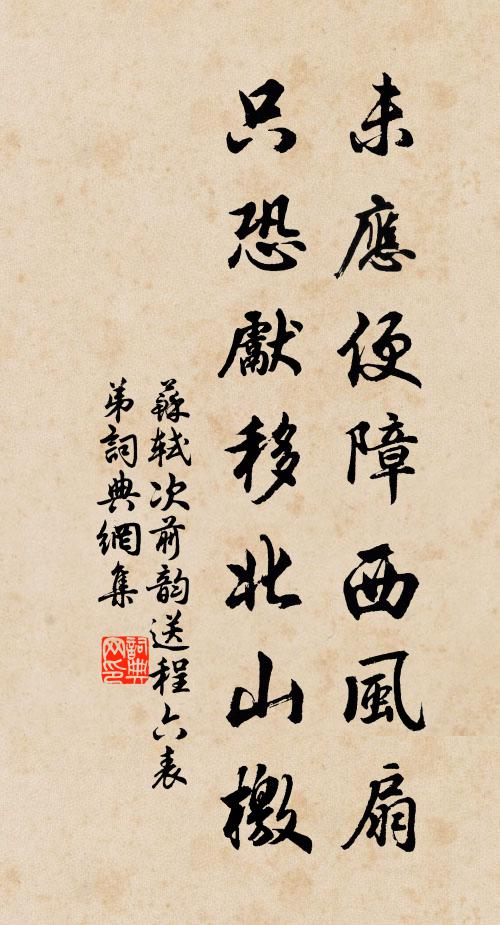 未應便障西風扇
只恐獻移北山檄
蘇軾次前韵送程六表
弟詞典網集
詞典网印